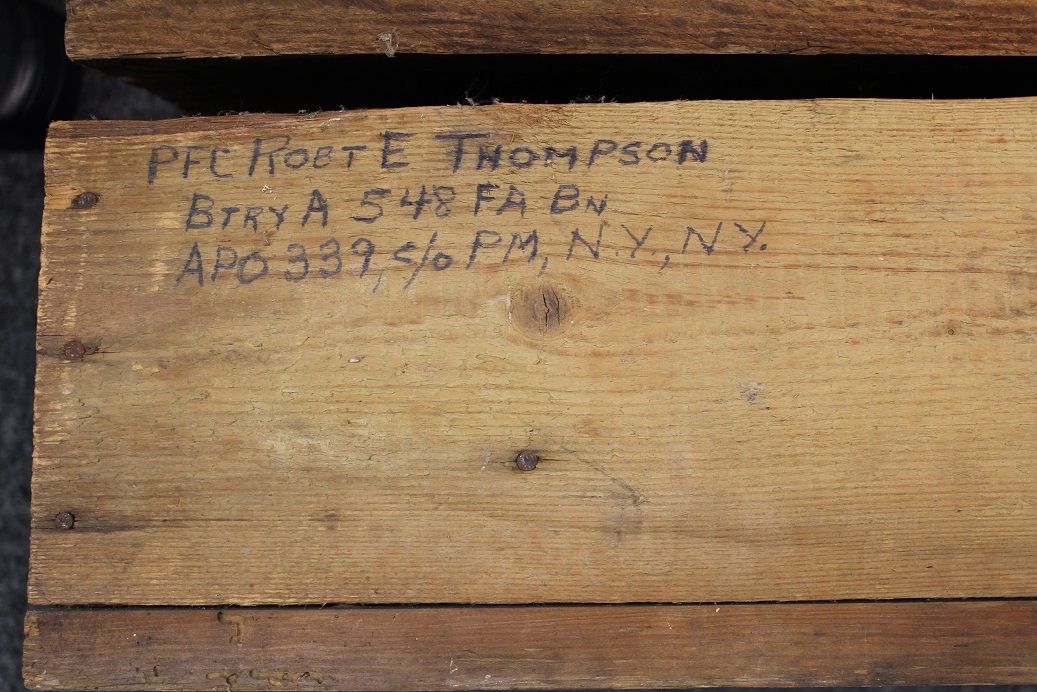 PFC ROBT E THOMPSON
BTRY A 548 FA BN
APO 339, c/o PM, N.Y., N.Y.